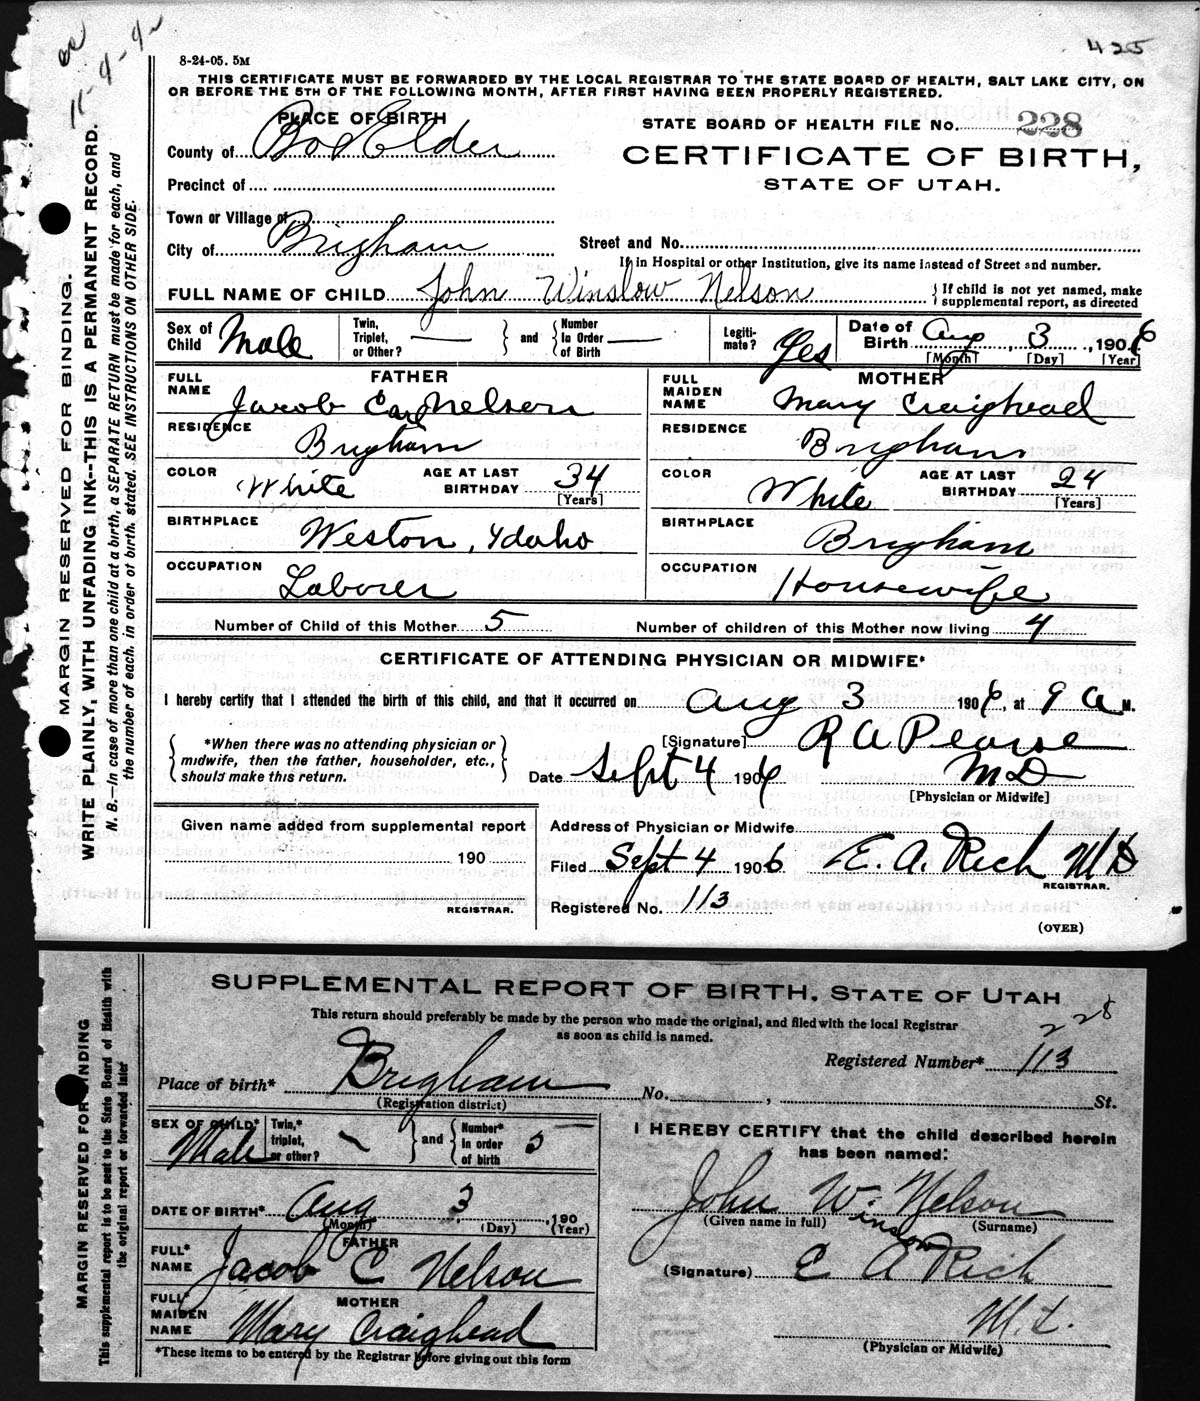 425
11-4-42
8-24-05. 5M
THIS CERTIFICATE MUST BE FORWARDED BY THE LOCAL REGISTRAR TO THE STATE BOARD OF HEALTH, SALT LAKE CITY, ON
OR BEFORE THE 5TH OF THE FOLLOWING MONTH, AFTER FIRST HAVING BEEN PROPERLY REGISTERED.
MARGIN RESERVED FOR BINDING.
WRITE PLAINLY, WITH UNFADING INK--THIS IS A PERMANENT RECORD.
N. B.—In case of more than one child at a birth, a SEPARATE RETURN must be made for each, and
the number of each, in order of birth, stated. SEE INSTRUCTIONS ON OTHER SIDE.
PLACE OF BIRTH
STATE BOARD OF HEALTH FILE No. 228
County of Box Elder
CERTIFICATE OF BIRTH,
STATE OF UTAH.
Precinct of
Town or Village of
City of Brigham
Street and No.
If in Hospital or other Institution, give its name instead of Street and number.
FULL NAME OF CHILD John Winslow Nelson { If child is not yet named, make
supplemental report, as directed
Sex of Child Male
Twin, Triplet, or Other? —
} and {
Number In Order of Birth —
Legiti- mate? Yes
Date of Birth Aug 3, 1906
[Month] [Day] [Year]
FATHER
FULL NAME Jacob Earl Nelson
MOTHER
FULL MAIDEN NAME Mary Craighead
RESIDENCE Brigham
RESIDENCE Brigham
COLOR White AGE AT LAST BIRTHDAY 34 [Years]
COLOR White AGE AT LAST BIRTHDAY 24 [Years]
BIRTHPLACE Weston, Idaho
BIRTHPLACE Brigham
OCCUPATION Laborer
OCCUPATION Housewife
Number of Child of this Mother 5 Number of children of this Mother now living 4
CERTIFICATE OF ATTENDING PHYSICIAN OR MIDWIFE*
I hereby certify that I attended the birth of this child, and that it occurred on Aug 3 1906, at 9 a M.
{ *When there was no attending physician or
midwife, then the father, householder, etc.,
should make this return. }
[Signature] R A Pearse
Date Sept 4 1906 M D
[Physician or Midwife]
Given name added from supplemental report
190
REGISTRAR.
Address of Physician or Midwife
Filed Sept 4 1906 E. A. Rich M D
REGISTRAR.
Registered No. 113
(OVER)
MARGIN RESERVED FOR BINDING
This supplemental report is to be sent to the State Board of Health with
the original report or forwarded later
SUPPLEMENTAL REPORT OF BIRTH, STATE OF UTAH
This return should preferably be made by the person who made the original, and filed with the local Registrar
as soon as child is named.
228
Registered Number* 113
Place of birth* Brigham No. , St.
(Registration district)
SEX OF CHILD* Male
Twin,* triplet, or other?
} and {
Number* in order of birth 5
DATE OF BIRTH* Aug 3 , 190
(Month) (Day) (Year)
FATHER
FULL* NAME Jacob C Nelson
MOTHER
FULL MAIDEN NAME Mary Craighead
*These items to be entered by the Registrar before giving out this form
I HEREBY CERTIFY that the child described herein
has been named:
John Winslow Nelson
(Given name in full) (Surname)
(Signature) E A Rich
M. D.
(Physician or Midwife)